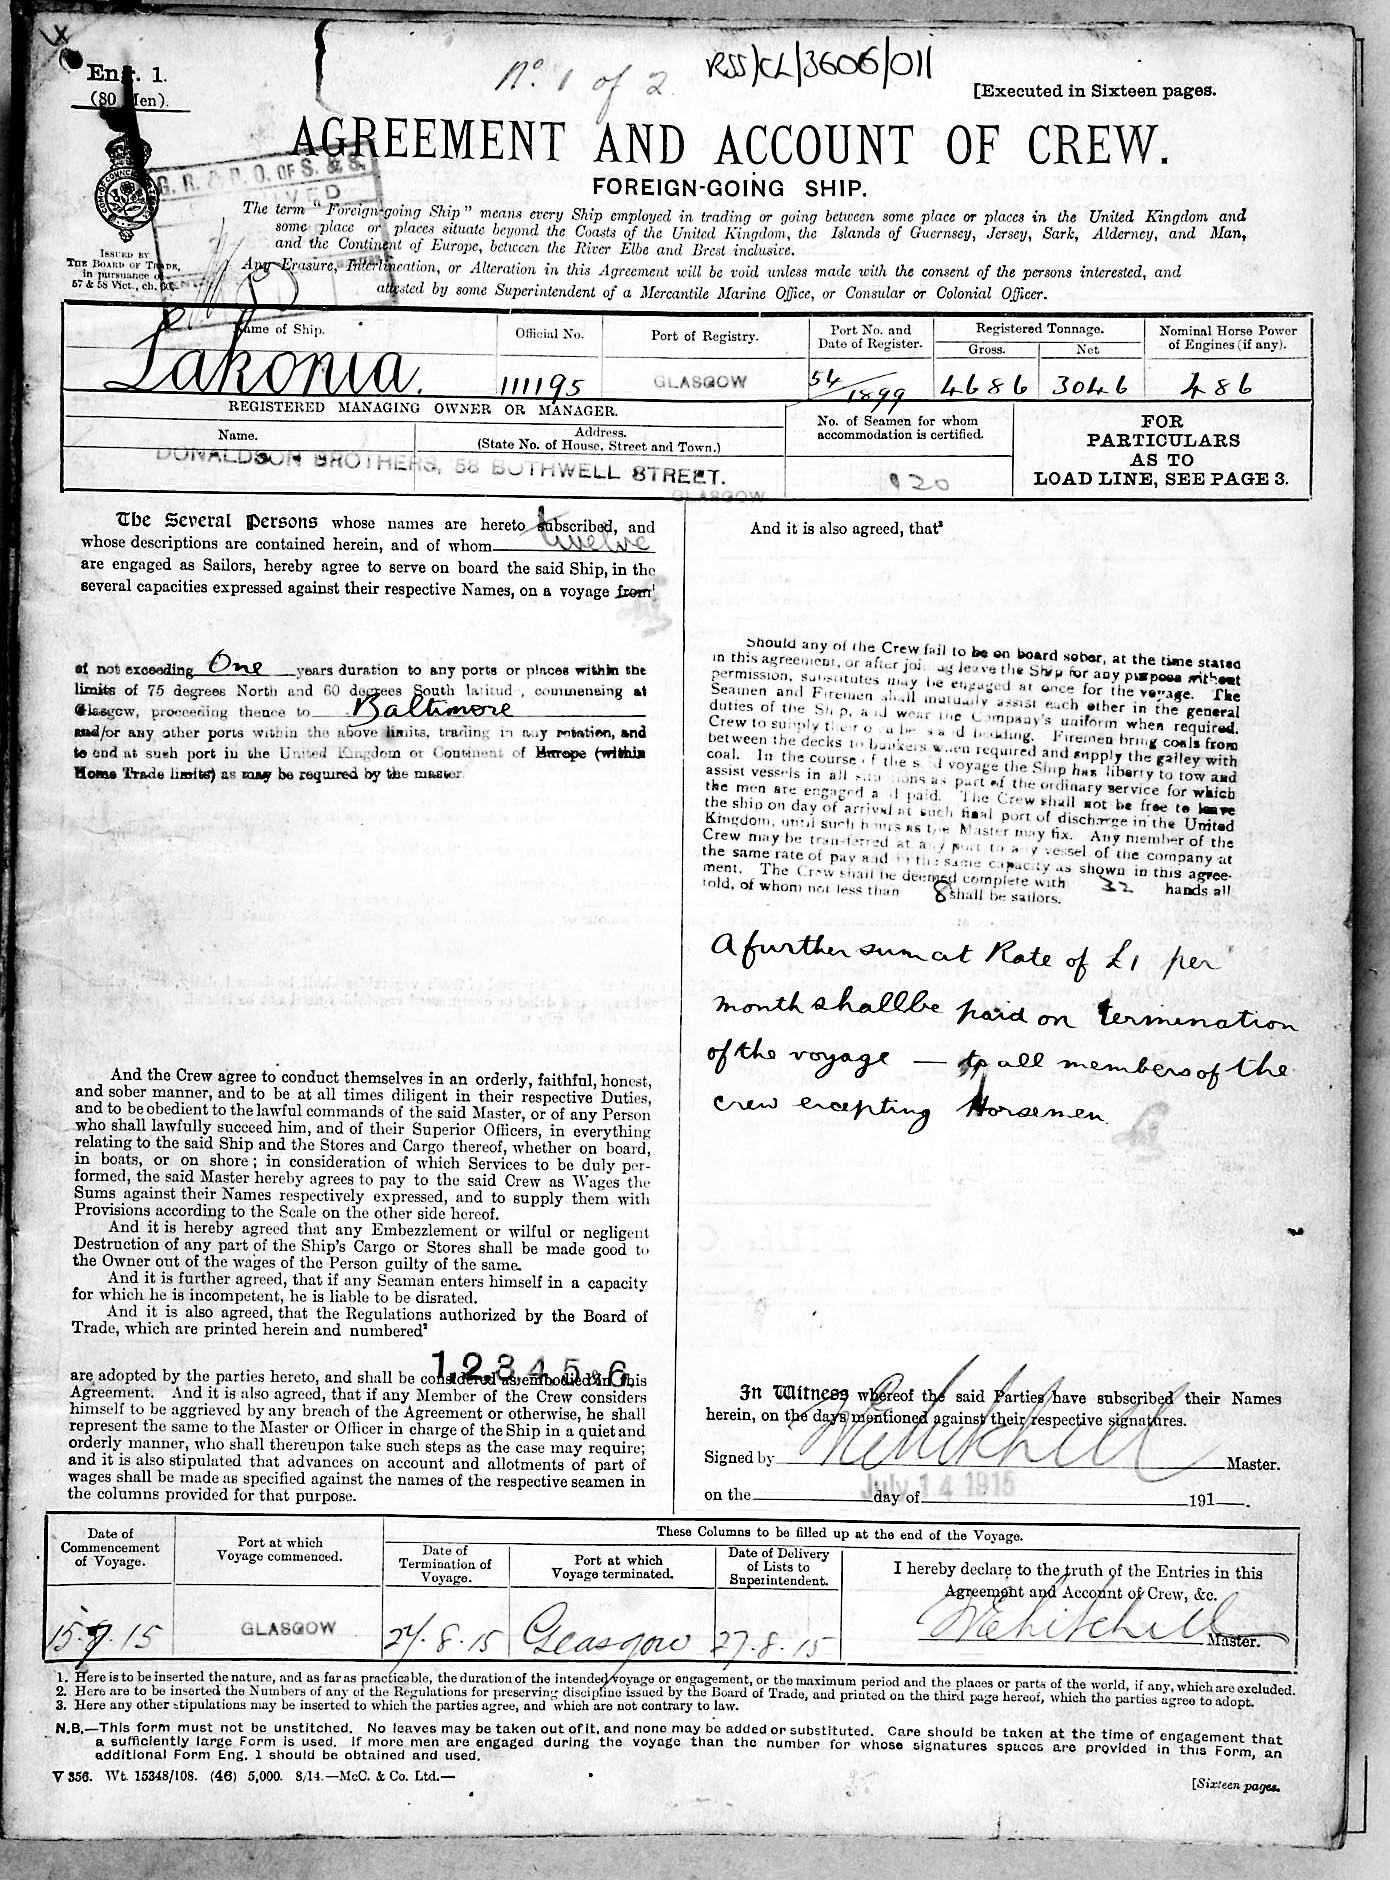 No. 1 of 2
RSS/CL/3606/011
Eng. 1.
(80 Men).
[Executed in Sixteen pages.
AGREEMENT AND ACCOUNT OF CREW.
FOREIGN-GOING SHIP.
G. R. & P. O. OF S. & S.
ISSUED BY
THE BOARD OF TRADE,
in pursuance of
57 & 58 Vict., ch. 60.
The term "Foreign-going Ship" means every Ship employed in trading or going between some place or places in the United Kingdom and
some place or places situate beyond the Coasts of the United Kingdom, the Islands of Guernsey, Jersey, Sark, Alderney, and Man,
and the Continent of Europe, between the River Elbe and Brest inclusive.
Any Erasure, Interlineation, or Alteration in this Agreement will be void unless made with the consent of the persons interested, and
attested by some Superintendent of a Mercantile Marine Office, or Consular or Colonial Officer.
Name of Ship.
Official No.
Port of Registry.
Port No. and
Date of Register.
Registered Tonnage.
Gross.
Net
Nominal Horse Power
of Engines (if any).
Lakonia.
111195
GLASGOW
54/1899
4686
3046
486
REGISTERED MANAGING OWNER OR MANAGER.
Name.
Address.
(State No. of House, Street and Town.)
No. of Seamen for whom
accommodation is certified.
FOR
PARTICULARS
AS TO
LOAD LINE, SEE PAGE 3.
DONALDSON BROTHERS, 58 BOTHWELL STREET.
GLASGOW
120
The Several Persons whose names are hereto subscribed, and
whose descriptions are contained herein, and of whom twelve
are engaged as Sailors, hereby agree to serve on board the said Ship, in the
several capacities expressed against their respective Names, on a voyage from¹
of not exceeding One years duration to any ports or places within the
limits of 75 degrees North and 60 degrees South latitud , commencing at
Glasgow, proceeding thence to Baltimore
and/or any other ports within the above limits, trading in any rotation, and
to end at such port in the United Kingdom or Continent of Europe (within
Home Trade limits) as may be required by the master
And the Crew agree to conduct themselves in an orderly, faithful, honest,
and sober manner, and to be at all times diligent in their respective Duties,
and to be obedient to the lawful commands of the said Master, or of any Person
who shall lawfully succeed him, and of their Superior Officers, in everything
relating to the said Ship and the Stores and Cargo thereof, whether on board,
in boats, or on shore; in consideration of which Services to be duly per-
formed, the said Master hereby agrees to pay to the said Crew as Wages the
Sums against their Names respectively expressed, and to supply them with
Provisions according to the Scale on the other side hereof.
And it is hereby agreed that any Embezzlement or wilful or negligent
Destruction of any part of the Ship's Cargo or Stores shall be made good to
the Owner out of the wages of the Person guilty of the same.
And it is further agreed, that if any Seaman enters himself in a capacity
for which he is incompetent, he is liable to be disrated.
And it is also agreed, that the Regulations authorized by the Board of
Trade, which are printed herein and numbered²
1, 2, 3, 4, 5, & 6,
are adopted by the parties hereto, and shall be considered as embodied in this
Agreement. And it is also agreed, that if any Member of the Crew considers
himself to be aggrieved by any breach of the Agreement or otherwise, he shall
represent the same to the Master or Officer in charge of the Ship in a quiet and
orderly manner, who shall thereupon take such steps as the case may require;
and it is also stipulated that advances on account and allotments of part of
wages shall be made as specified against the names of the respective seamen in
the columns provided for that purpose.
And it is also agreed, that³
Should any of the Crew fail to be on board sober, at the time stated
in this agreement, or after joining leave the Ship for any purpose without
permission, substitutes may be engaged at once for the voyage. The
Seamen and Firemen shall mutually assist each other in the general
duties of the Ship, and wear the Company's uniform when required.
Crew to supply their own beds and bedding. Firemen bring coals from
between the decks to bunkers when required and supply the galley with
coal. In the course of the said voyage the Ship has liberty to tow and
assist vessels in all situations as part of the ordinary service for which
the men are engaged and paid. The Crew shall not be free to leave
the ship on day of arrival at such final port of discharge in the United
Kingdom, until such hours as the Master may fix. Any member of the
Crew may be transferred at any port to any vessel of the company at
the same rate of pay and in the same capacity as shown in this agree-
ment. The Crew shall be deemed complete with 32 hands all
told, of whom not less than 8 shall be sailors.
A further sum at Rate of £1 per
month shall be paid on termination
of the voyage — to all members of the
crew excepting Horsemen.
In Witness whereof the said Parties have subscribed their Names
herein, on the days mentioned against their respective signatures.
Signed by WEMitchell Master.
on the day of 191 .
July 14 1915
Date of
Commencement
of Voyage.
Port at which
Voyage commenced.
These Columns to be filled up at the end of the Voyage.
Date of
Termination of
Voyage.
Port at which
Voyage terminated.
Date of Delivery
of Lists to
Superintendent.
I hereby declare to the truth of the Entries in this
Agreement and Account of Crew, &c.
15.7.15
GLASGOW
27.8.15
Glasgow
27.8.15
WEMitchell Master.
1. Here is to be inserted the nature, and as far as practicable, the duration of the intended voyage or engagement, or the maximum period and the places or parts of the world, if any, which are excluded.
2. Here are to be inserted the Numbers of any of the Regulations for preserving discipline issued by the Board of Trade, and printed on the third page hereof, which the parties agree to adopt.
3. Here any other stipulations may be inserted to which the parties agree, and which are not contrary to law.
N.B.—This form must not be unstitched. No leaves may be taken out of it, and none may be added or substituted. Care should be taken at the time of engagement that
a sufficiently large Form is used. If more men are engaged during the voyage than the number for whose signatures spaces are provided in this Form, an
additional Form Eng. 1 should be obtained and used.
V 356. Wt. 15348/108. (46) 5,000. 8/14.—McC. & Co. Ltd.—
[Sixteen pages.